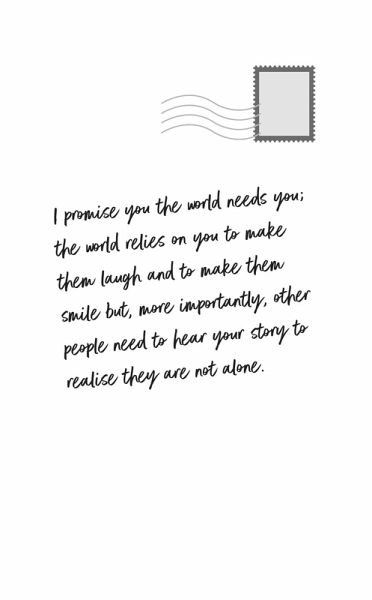 I promise you the world needs you;
the world relies on you to make
them laugh and to make them
smile but, more importantly, other
people need to hear your story to
realise they are not alone.